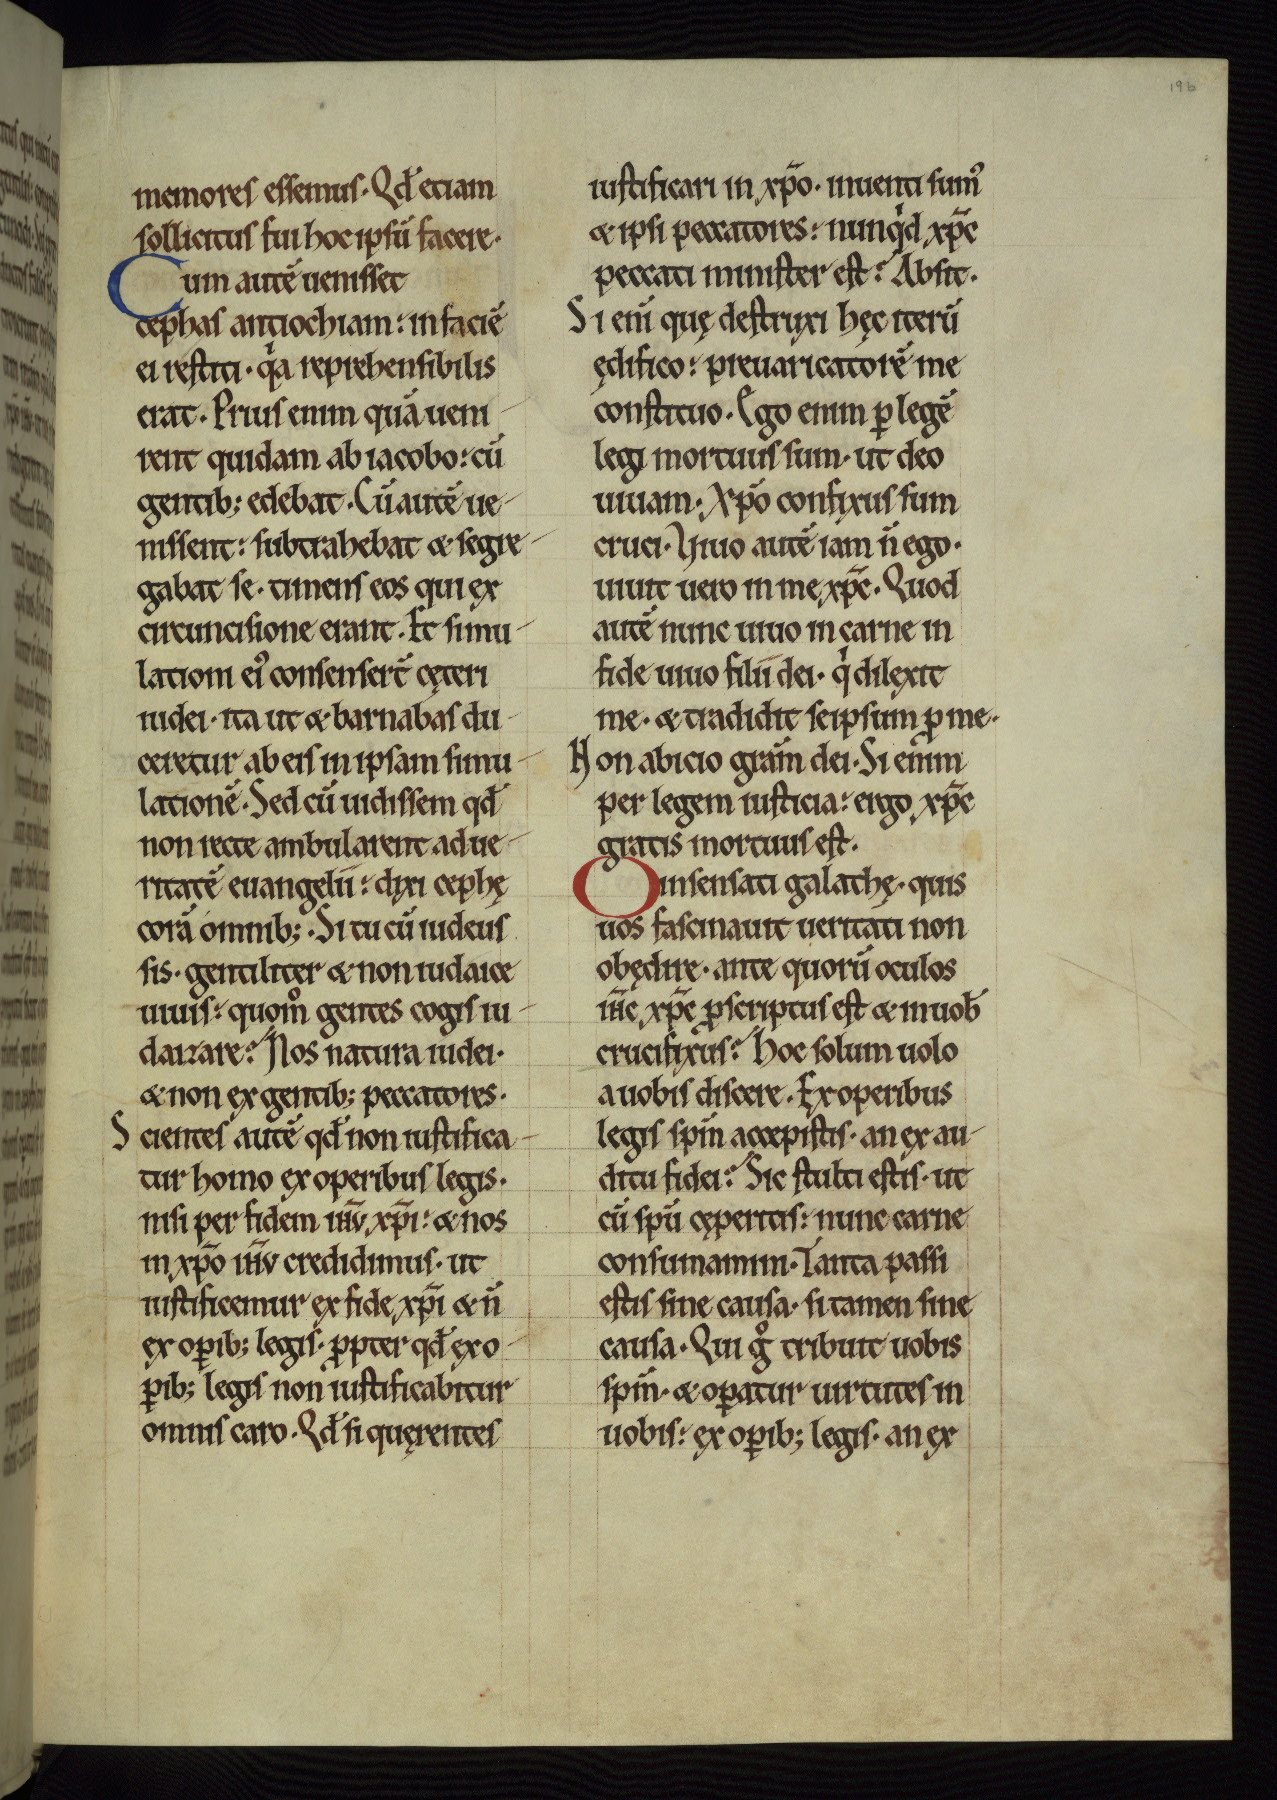 196
memores essemus. Qd̄ etiam
sollicitus fui hoc ipsū facere.
Cum autē uenisset
cephas antiochiam: in faciē
ei restiti. qͥa reprehensibilis
erat. Prius enim quā ueni-
rent quidam ab iacobo: cū
gentib; edebat. Cū autē ue-
nissent: subtrahebat & segre-
gabat se. timens eos qui ex
circuncisione erant. Et simu-
lationi eiꝰ consenserт̄ cęteri
iudei. ita ut & barnabas du-
ceretur ab eis in ipsam simu-
lationē. Sed cū uidissem qd̄
non recte ambularent ad ue-
ritatē euangelii: dixi cephę
corā omnib;. Si tu cū iudeus
sis. gentiliter & non iudaice
uiuis: quom̊ gentes cogis iu-
daizare? Nos natura iudei.
& non ex gentib; peccatores.
Scientes autē qd̄ non iustifica-
tur homo ex operibus legis.
nisi per fidem ih̄v xp̄i: & nos
in xp̄o ih̄v credidimus. ut
iustificemur ex fide xp̄i & n̄
ex oꝑib; legis. ꝓpter qd̄ ex o-
ꝑib; legis non iustificabitur
omnis caro. Qd̄ si quęrentes
iustificari in xp̄o. inuenti sumꝰ
& ipsi peccatores: nunqͥd xp̄c
peccati minister est? Absit.
Si eni̅ quę destruxi hęc iterū
ędifico: preuaricatorē me
constituo. Ego enim ꝑ legē
legi mortuus sum. ut deo
uiuam. Xp̄o confixus sum
cruci. Viuo autē iam n̄ ego.
uiuit uero in me xp̄c. Quod
autē nunc uiuo in carne in
fide uiuo filii dei. qͥ dilexit
me. & tradidit seipsum ꝓ me.
Non abicio grām dei. Si enim
per legem iusticia: ergo xp̄c
gratis mortuus est.
O insensati galathę. quis
uos fascinauit ueritati non
obędire. ante quorū oculos
ih̄c xp̄c ꝓscriptus est & in uob̄
crucifixus? Hoc solum uolo
a uobis discere. Ex operibus
legis sp̄m accepistis. an ex au-
ditu fidei? Sic stulti estis. ut
cū sp̄u cęperitis: nunc carne
consumamini. Tanta passi
estis sine causa. si tamen sine
causa. Qui gͦ tribuit uobis
sp̄m. & oꝑatur uirtutes in
uobis: ex oꝑib; legis. an ex